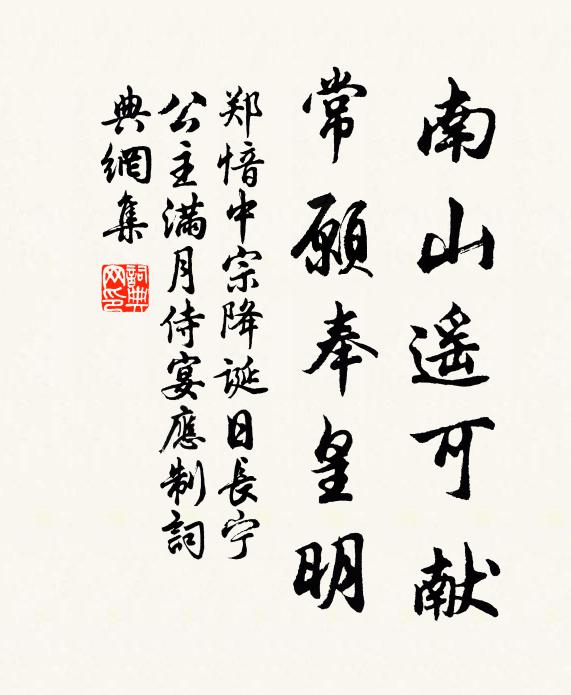 南山遥可献
常愿奉皇明
郑愔中宗降诞日長宁
公主满月侍宴應制詞
典網集
詞典网印